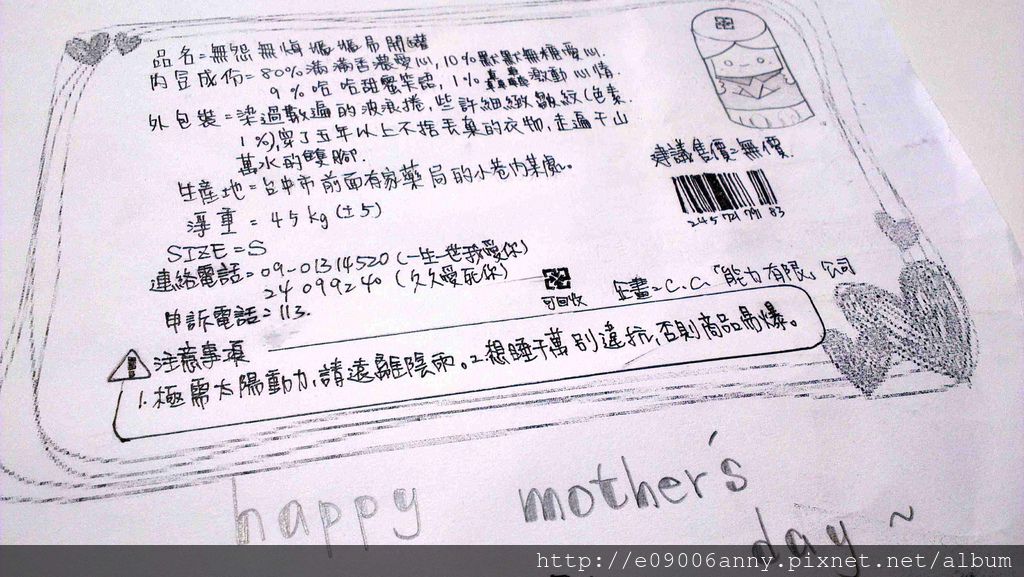 品名=無怨無悔媽媽易開罐
內豆成份=80%滿滿香濃愛心,10%默默無糖愛心.
9%哈哈甜蜜笑語,1%轟轟激動心情.
外包裝=染過數遍的波浪捲,些許細緻皺紋(色素
1%),穿了五年以上不捨丟棄的衣物,走遍千山
萬水的雙腳.
生產地=台中市前面有家藥局的小巷內某處。
淨重=45kg(±5)
SIZE=S
連絡電話=09-01314520(一生一世我愛你)
24099240(久久愛死你)
申訴電話=113.
建議售價=無價.
245 741 791 83
可回收
企畫=C.C.「能力有限」公司
注意事項
1.極需太陽動力,請遠離陰雨。2.想睡千萬別違抗,否則商品易爆。
happy mother's
day~
http://e09006anny.pixnet.net/album